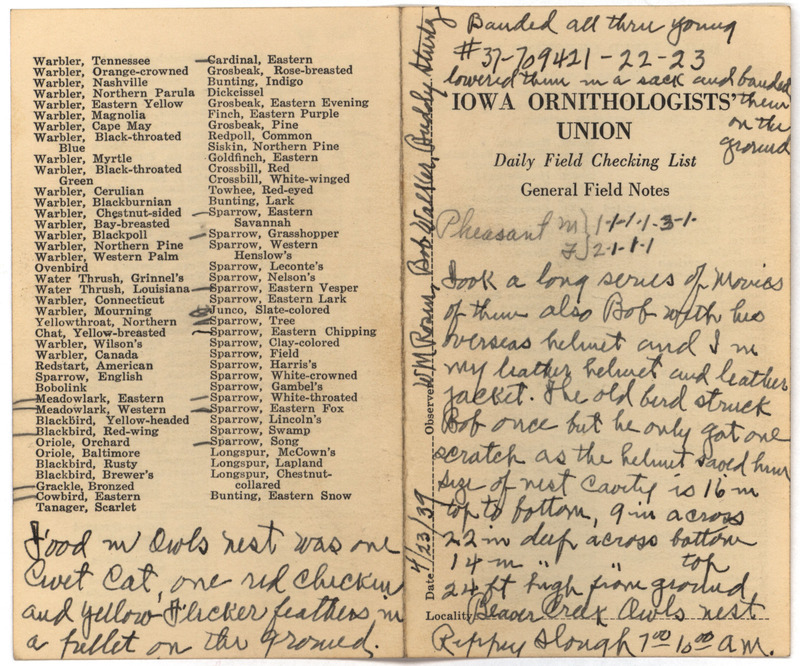 Warbler, Tennessee
Warbler, Orange-crowned
Warbler, Nashville
Warbler, Northern Parula
Warbler, Eastern Yellow
Warbler, Magnolia
Warbler, Cape May
Warbler, Black-throated
Blue
Warbler, Myrtle
Warbler, Black-throated
Green
Warbler, Cerulian
Warbler, Blackburnian
Warbler, Chestnut-sided
Warbler, Bay-breasted
Warbler, Blackpoll
Warbler, Northern Pine
Warbler, Western Palm
Ovenbird
Water Thrush, Grinnel's
Water Thrush, Louisiana
Warbler, Connecticut
Warbler, Mourning
Yellowthroat, Northern
Chat, Yellow-breasted
Warbler, Wilson's
Warbler, Canada
Redstart, American
Sparrow, English
Bobolink
Meadowlark, Eastern
Meadowlark, Western
Blackbird, Yellow-headed
Blackbird, Red-wing
Oriole, Orchard
Oriole, Baltimore
Blackbird, Rusty
Blackbird, Brewer's
Grackle, Bronzed
Cowbird, Eastern
Tanager, Scarlet
Cardinal, Eastern
Grosbeak, Rose-breasted
Bunting, Indigo
Dickcissel
Grosbeak, Eastern Evening
Finch, Eastern Purple
Grosbeak, Pine
Redpoll, Common
Siskin, Northern Pine
Goldfinch, Eastern
Crossbill, Red
Crossbill, White-winged
Towhee, Red-eyed
Bunting, Lark
Sparrow, Eastern
Savannah
Sparrow, Grasshopper
Sparrow, Western
Henslow's
Sparrow, Leconte's
Sparrow, Nelson's
Sparrow, Eastern Vesper
Sparrow, Eastern Lark
Junco, Slate-colored
Sparrow, Tree
Sparrow, Eastern Chipping
Sparrow, Clay-colored
Sparrow, Field
Sparrow, Harris's
Sparrow, White-crowned
Sparrow, Gambel's
Sparrow, White-throated
Sparrow, Eastern Fox
Sparrow, Lincoln's
Sparrow, Swamp
Sparrow, Song
Longspur, McCown's
Longspur, Lapland
Longspur, Chestnut-
collared
Bunting, Eastern Snow
Food in Owls nest was one
Civet Cat, one red chicken
and yellow Flicker feathers in
a pellet on the ground.
Banded all thru young
#37-709421-22-23
lowered them in a sack and banded
them
on the
ground
IOWA ORNITHOLOGISTS'
UNION
Daily Field Checking List
General Field Notes
Pheasant M } 1-1-1-1-3-1-
F } 2-1-1-1
Took a long series of Movies
of them also Bob with his
overseas helmet and I in
my leather helmet and leather
jacket. The old bird struck
Bob once but he only got one
scratch as the helmet saved him
size of nest cavity is 16 in
top to bottom, 9 in across
22 in deep across bottom
14 in " " top
24 ft high from ground
Locality Beaver Creek Owls nest
Rippey Slough 7 00 10 00 A.M.
Date 4/23/39 Observer W M Rosen, Bob Walker, Buddy